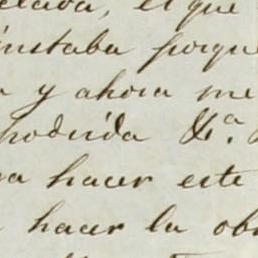 el que
instaba porque
y ahora me
podrida &.a
hacer este
hacer la ob